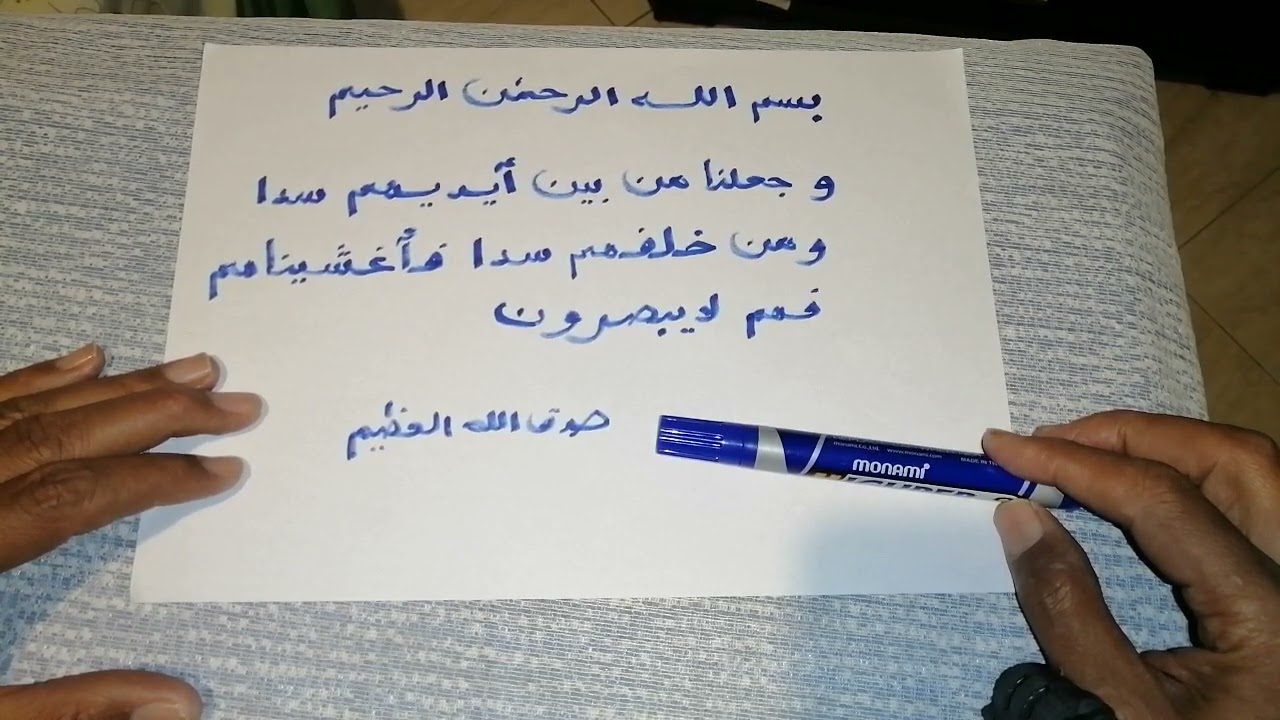 بسم الله الرحمٰن الرحيم
و جعلنا من بين أيديهم سدا
ومن خلفهم سدا فأغشينامم
فهم لا يبصرون
صدق الله العظيم
monami
www.monami.com